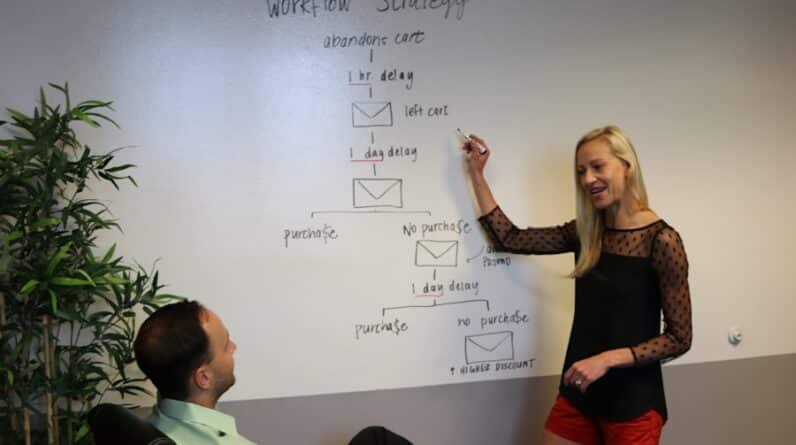 Workflow Strategy
abandons cart
1 hr delay
left cart
1 day delay
purcha$e
No purcha$e
PROMO
1 day delay
purcha$e
no purcha$e
↑ HIGHER DISCOUNT